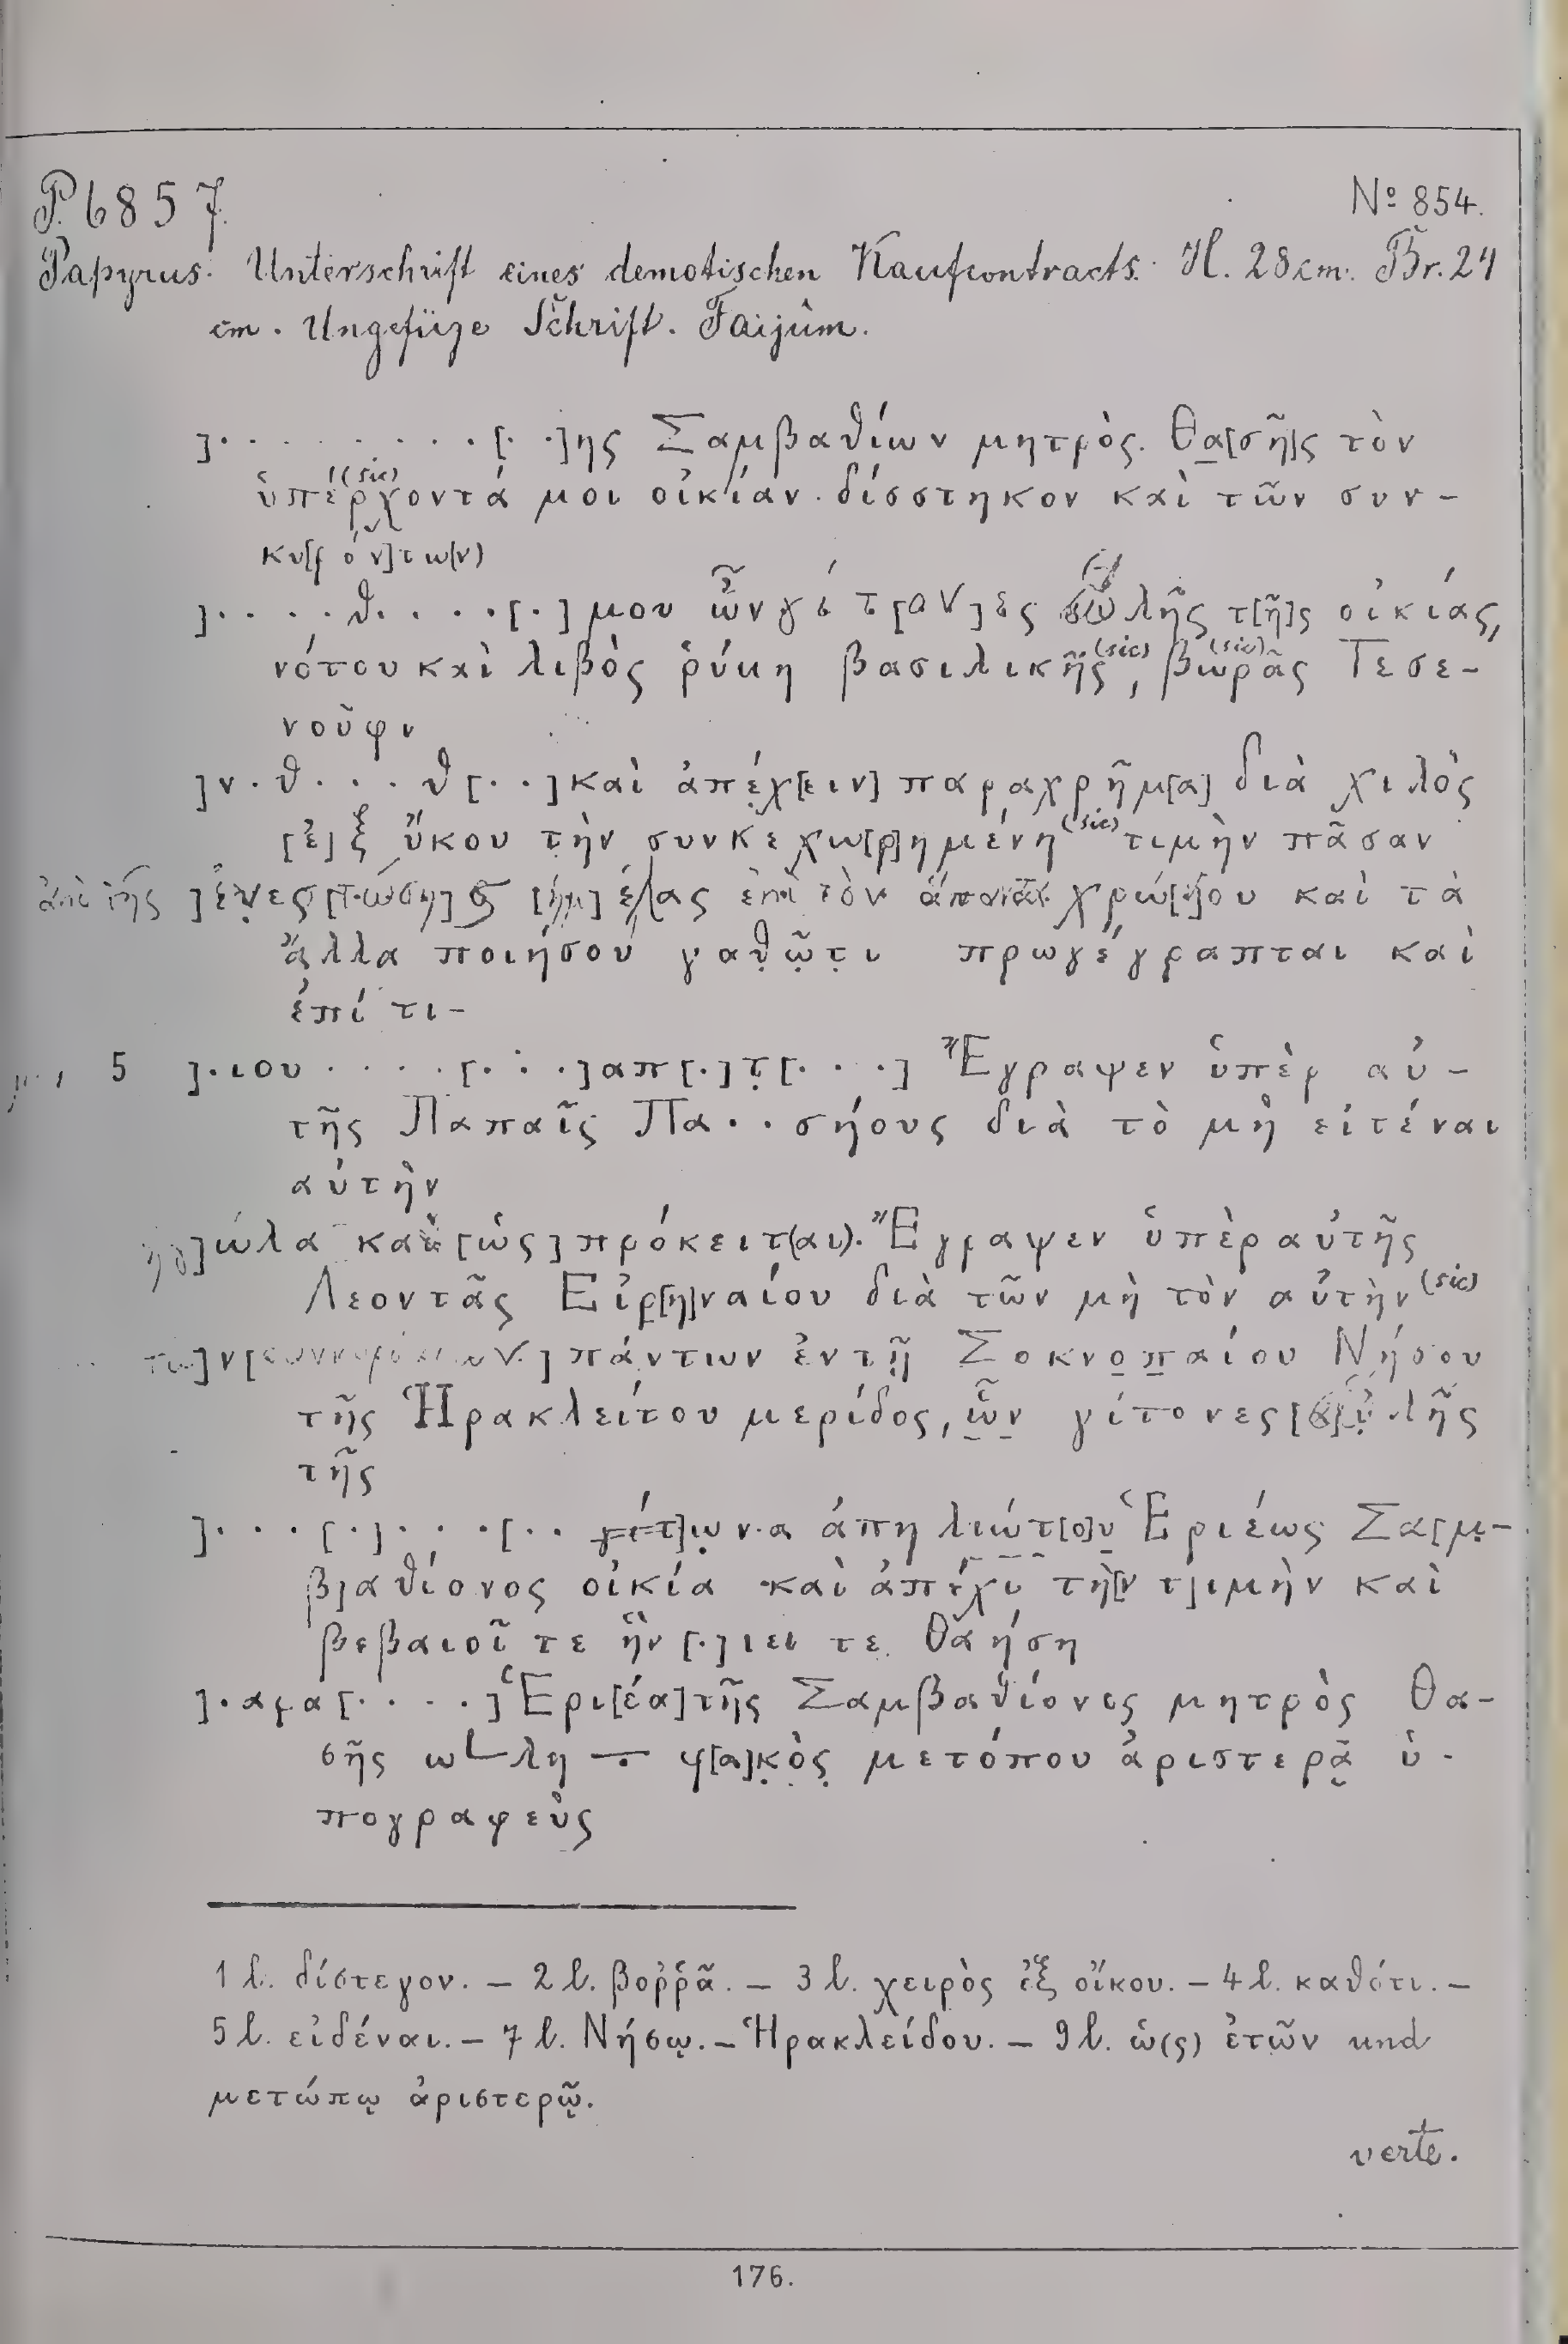 P. 6857. № 854.
Papyrus. Unterschrift eines demotischen Kaufcontracts. H. 28 cm. Br. 24
cm. Ungefüge Schrift. Faijûm.
]· · · · · · · · ·[· ·]ης Σαμβαθίων μητρὸς Θα[σῆ]ς τὸν
ὑπέρχοντά (sic) μοι οἰκίαν δίσστηκον καὶ τῶν συν-
κυ[ρόν]τω(ν)
]· · · · θ · · · ·[·] μου ὧν γίτ[ον]ες ὥλῆς τ[ῆ]ς οἰκίας,
νότου καὶ λιβὸς ῥύμη βασιλικῆς (sic), βωρᾶς (sic) Τεσε-
νοῦφι
]ν · θ · · · θ[· ·] καὶ ἀπέχ[ειν] παραχρῆμ[α] διὰ χιλὸς
[ἐ]ξ ὔκου τὴν συνκεχω[ρ]ημένη (sic) τιμὴν πᾶσαν
ἀπὸ τῆς ]ἐνεσ[τώση]ς [ἡμ]έρας ἐπὶ τὸν ἅπαντα χρώ[ν]ου καὶ τὰ
ἄλλα ποιήσου γαθῶτι πρωγέγραπται καὶ
ἐπί τι-
5 ]·ιου · · · ·[· · ·]απ[·]τ[· · ·] Ἔγραψεν ὑπὲρ αὐ-
τῆς Παπαῖς Πα· · σήους διὰ τὸ μὴ εἰτέναι
αὐτὴν
]ώλα καὶ [ὡς] πρόκειτ(αι). Ἔγραψεν ὑπὲρ αὐτῆς
Λεοντᾶς Εἰρ[η]ναίου διὰ τῶν μὴ τὸν αὐτὴν (sic)
τω]ν [συνκυρόντων] πάντων ἐν τῇ Σοκνοπαίου Νήσου
τῆς Ἡρακλείτου μερίδος, ὧν γίτονες [α]ὐλῆς
τῆς
]· · · [·]· · · ·[· · γίτ]ων·α ἀπηλιώτ[ο]υ Ἑριέως Σα[μ-
β]αθίονος οἰκία καὶ ἀπέχι τὴ[ν τ]ιμὴν καὶ
βεβαιοῖ τε ἣν [·]ιει τε Θαήση
]·αμα[· · · ·] Ἑρι[έα]τῆς Σαμβαθίονος μητρὸς Θα-
σῆς ω└λη — φ[α]κὸς μετόπου ἀριστερᾷ ὑ-
πογραφεὺς
1 l. δίστεγον. — 2 l. βοῤῥᾶ. — 3 l. χειρὸς ἐξ οἴκου. — 4 l. καθότι. —
5 l. εἰδέναι. — 7 l. Νήσῳ. — Ἡρακλείδου. — 9 l. ὡ(ς) ἐτῶν und
μετώπῳ ἀριστερῷ.
verte.
176.